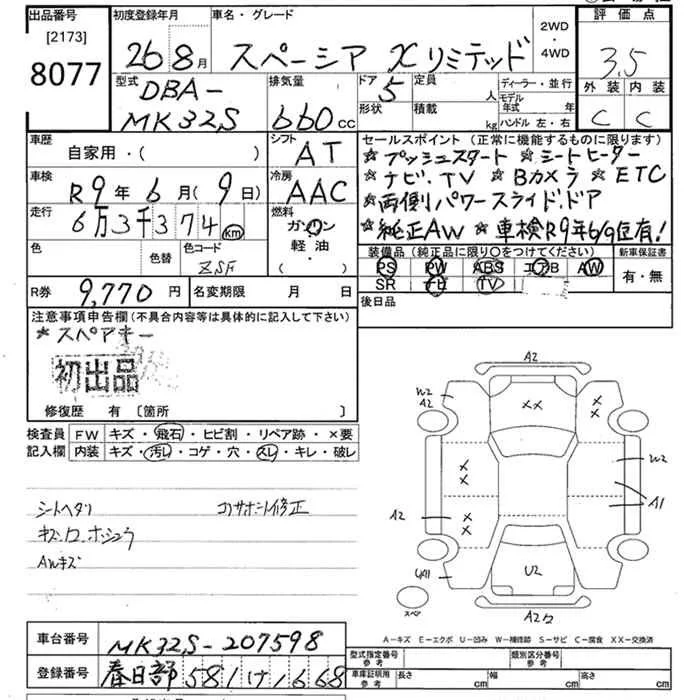 出品番号
[2173]
8077
初度登録年月
26 8月
車名・グレード
スペーシア X リミテッド
2WD
・
4WD
評価点
3.5
外装 内装
C C
型式
DBA-
MK32S
排気量
660cc
ドア
5
形状
定員 人
積載 kg
ディーラー・並行
モデル年式 年
ハンドル 左・右
車歴
自家用・( )
シフト
AT
セールスポイント(正常に機能するものに限ります)
☆プッシュスタート ☆シートヒーター
☆ナビ.TV ☆Bカメラ ☆ETC
☆両側パワースライドドア
☆純正AW ☆車検R9年6/9迄有!
車検
R9年6月(9日)
冷房
AAC
走行
6万3千374km
燃料
ガソリン
軽油
・
色
色替
色コード
ZSF
装備品(純正品に限り○をつけてください)
PS PW ABS エアB AW
SR ナビ TV
新車保証書
有・無
R券
9,770円
名変期限 月 日
後日品
注意事項申告欄(不具合内容等は具体的に記入して下さい)
*スペアキー
初出品
修復歴 有 〔箇所 〕
検査員記入欄
FW キズ・飛石・ヒビ割・リペア跡・×要
内装 キズ・汚レ・コゲ・穴・スレ・キレ・破レ
シートヘタリ コアサポート修正
キズ.ワレ.ホシュウ
AWキズ
A2
W2
A2
××
×
×
×
×
W2
A1
A2
×
×
U2
スペア
A-キズ E-エクボ U-凹み W-補修跡 S-サビ C-腐食 XX-交換済
車台番号
MK32S-207598
登録番号
春日部 581 け 1668
型式指定番号
参考
類別区分番号
参考
車庫証明用
参考
長さ cm
幅 cm
高さ cm